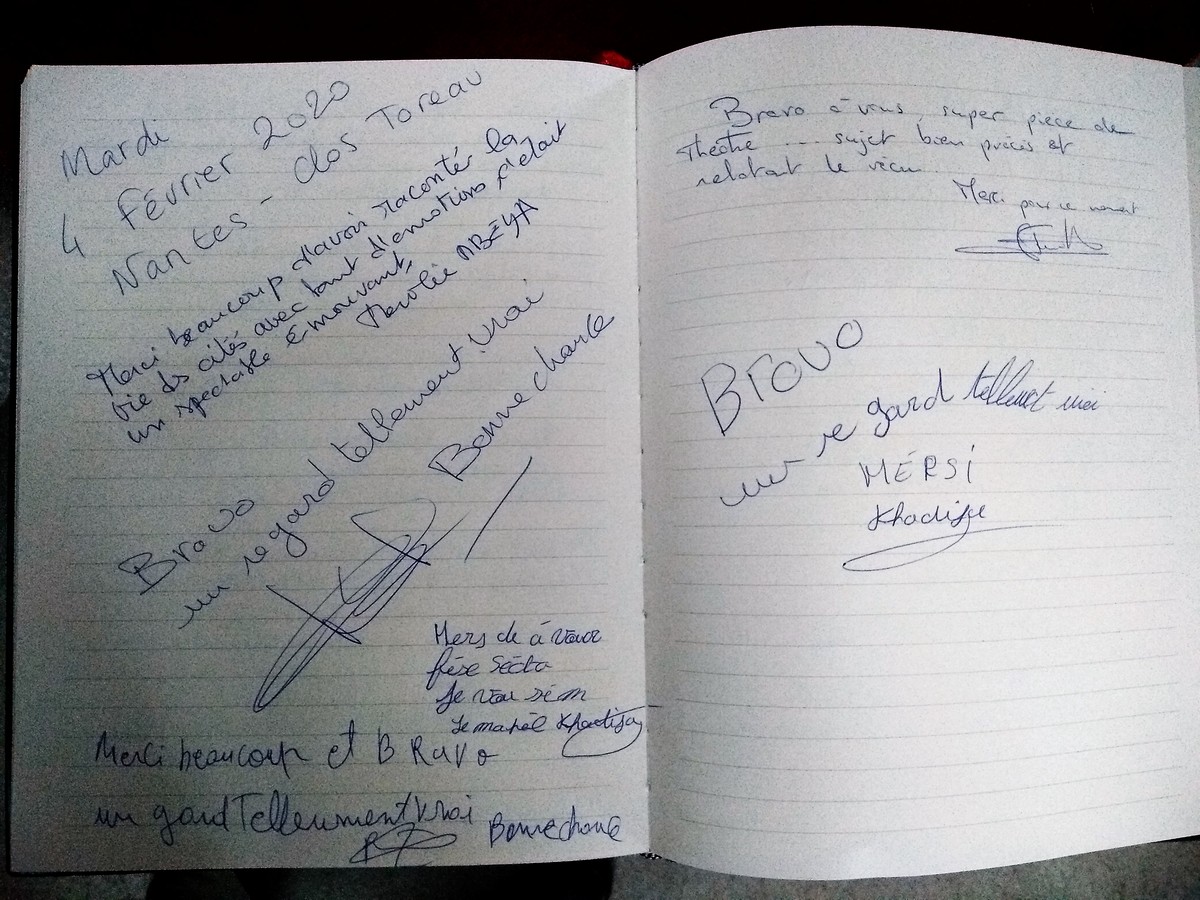 Mardi
4 Février 2020
Nantes - clos Toreau
Merci beaucoup d'avoir raconter la
vie des cités avec tant d'emotions c'etait
un spectacle émouvant,
MBÉYA
Bravo
un regard tellement vrai
Bonne chance
Mers de à vour
fère Sécto
Je vou
Je mapèl Khadija
Merci beaucoup et BRavo
un gard Telleument vrai
Bonne chance
Bravo à vous, super pièce de
Théâtre .... sujet bien précis et
relatant le vécu...
Merci pour ce moment.
Bravo
un regard tellment vrai
MÉRSi
Khadija